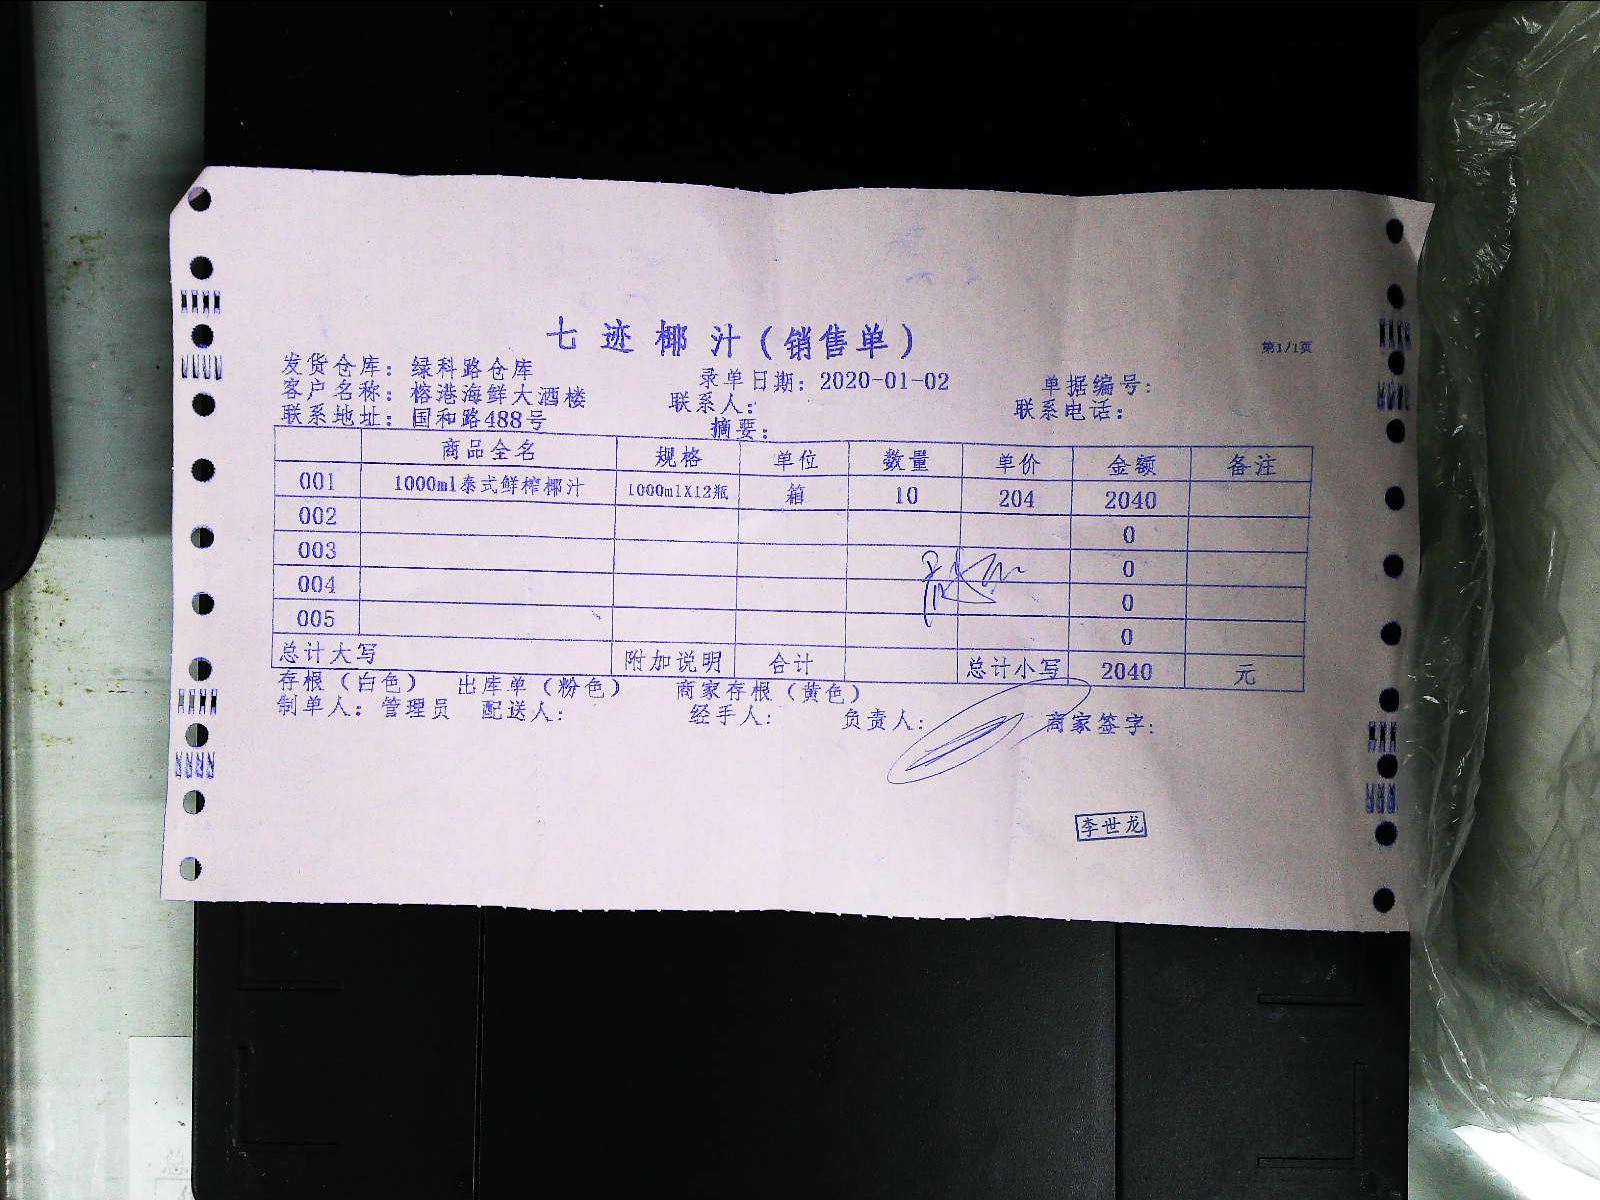 七迹椰汁(销售单)
第1/1页
发货仓库：绿科路仓库 录单日期：2020-01-02 单据编号：
客户名称：榕港海鲜大酒楼 联系人： 联系电话：
联系地址：国和路488号 摘要：
商品全名 规格 单位 数量 单价 金额 备注
001 1000ml泰式鲜榨椰汁 1000mlX12瓶 箱 10 204 2040
002 0
003 0
004 0
005 0
总计大写 附加说明 合计 总计小写 2040 元
存根（白色） 出库单（粉色） 商家存根（黄色）
制单人：管理员 配送人： 经手人： 负责人： 商家签字：
李世龙